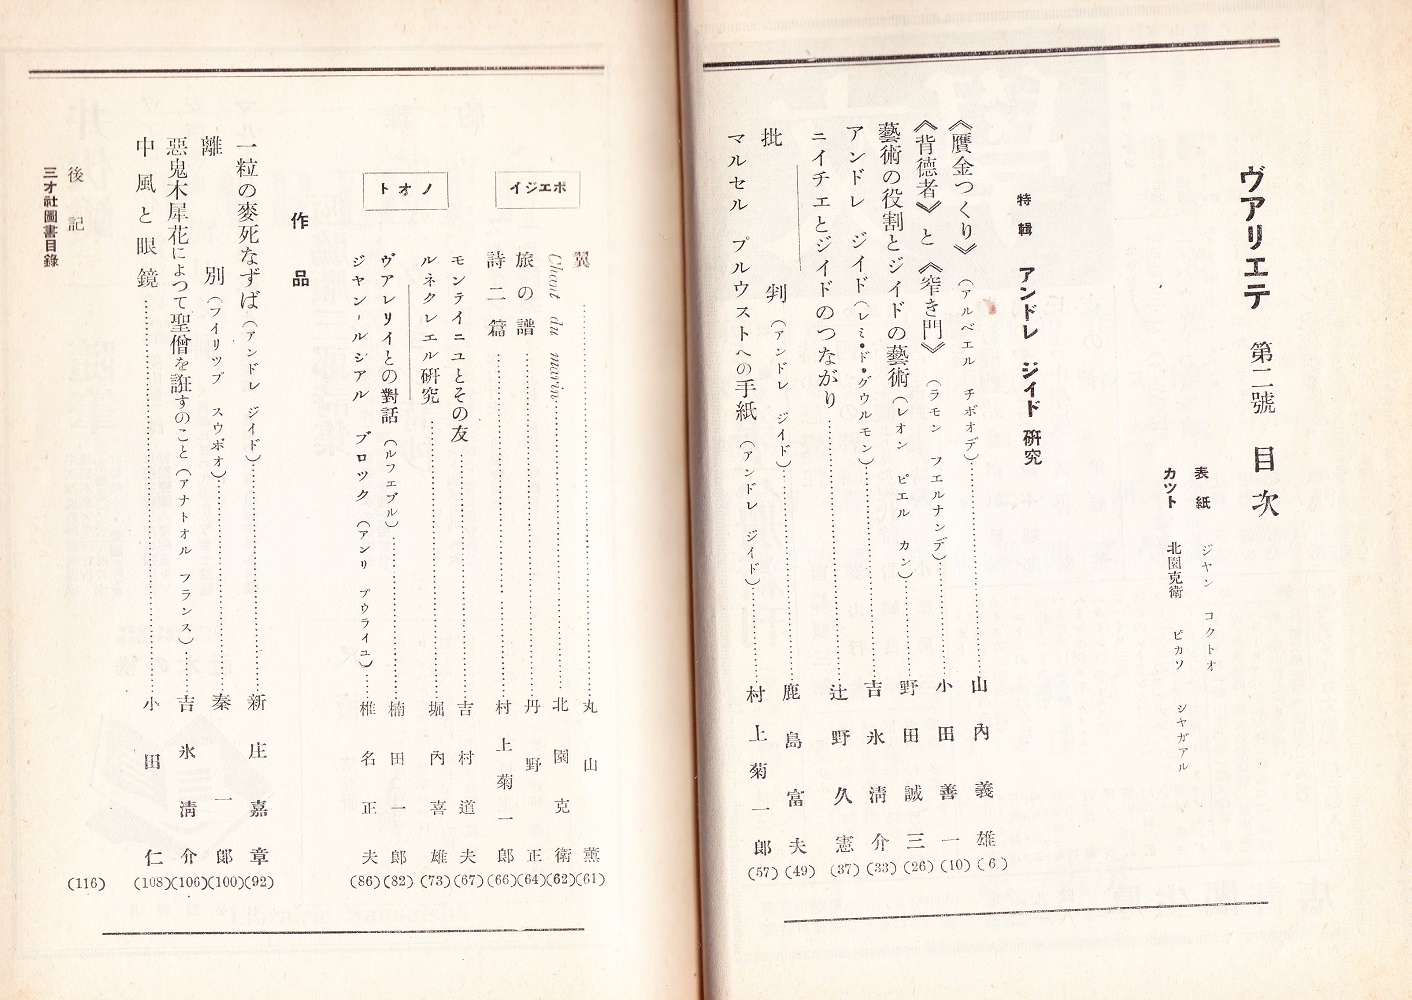 ヴアリエテ 第二號 目次
表紙 ジヤン コクトオ
カツト 北園克衛 ピカソ シヤガアル
特輯 アンドレ ジイド研究
《贋金つくり》（アルベエル チボオデ）……山內義雄(6)
《背德者》と《窄き門》（ラモン フエルナンデ）……小田善一(10)
藝術の役割とジイドの藝術（レオン ピエル カン）……野田誠三(26)
アンドレ ジイド（レミ・ド・グウルモン）……吉氷淸介(33)
ニイチエとジイドのつながり……辻野久憲(37)
批判（アンドレ ジイド）……鹿島富夫(49)
マルセル プルウストへの手紙（アンドレ ジイド）……村上菊一郞(57)
ポエジイ
翼……丸山薰(61)
Chant du marin……北園克衛(62)
旅の譜……丹野正(64)
詩二篇……村上菊一郞(66)
ノオト
モンテイニユとその友……吉村道夫(67)
ルネクレエル硏究……堀內喜雄(73)
ヴアレリイとの對話（ルフエブル）……楠田一郞(82)
ジヤン－ルシアル ブロツク（アンリ プウライユ）……椎名正夫(86)
作品
一粒の麥死なずば（アンドレ ジイド）……新庄嘉章(92)
離別（フイリツプ スウポオ）……秦一郞(100)
惡鬼木犀花によつて聖僧を誑すのこと（アナトオル フランス）……吉氷淸介(106)
中風と眼鏡……小田仁(108)
後記
三才社圖書目錄
(116)